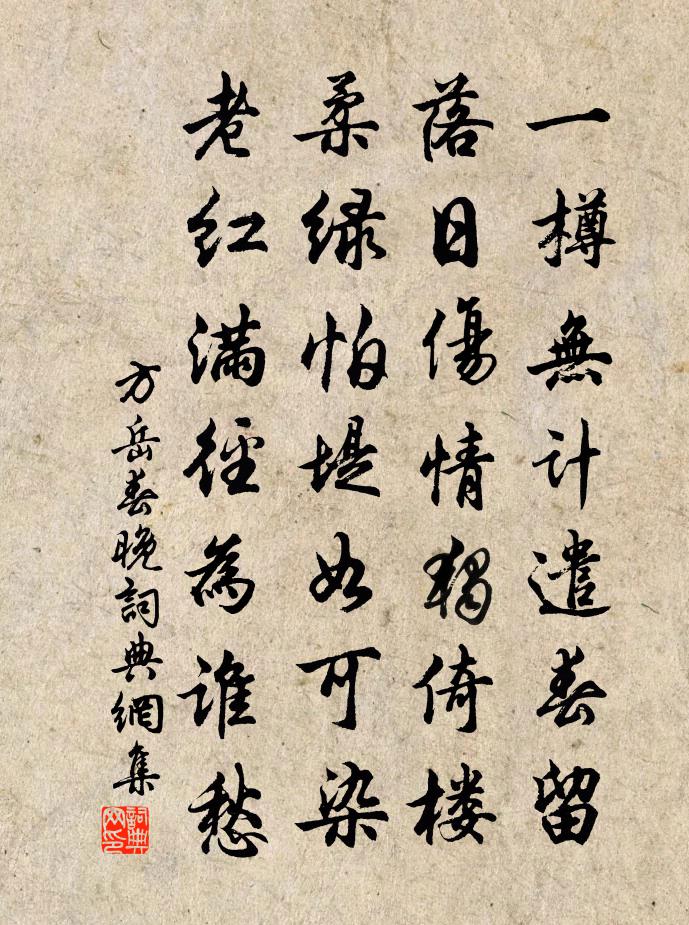 一樽無計遣春留
落日傷情獨倚楼
柔緑怕堤如可染
老红滿徑為誰愁
方岳春晚詞典網集
詞典网印